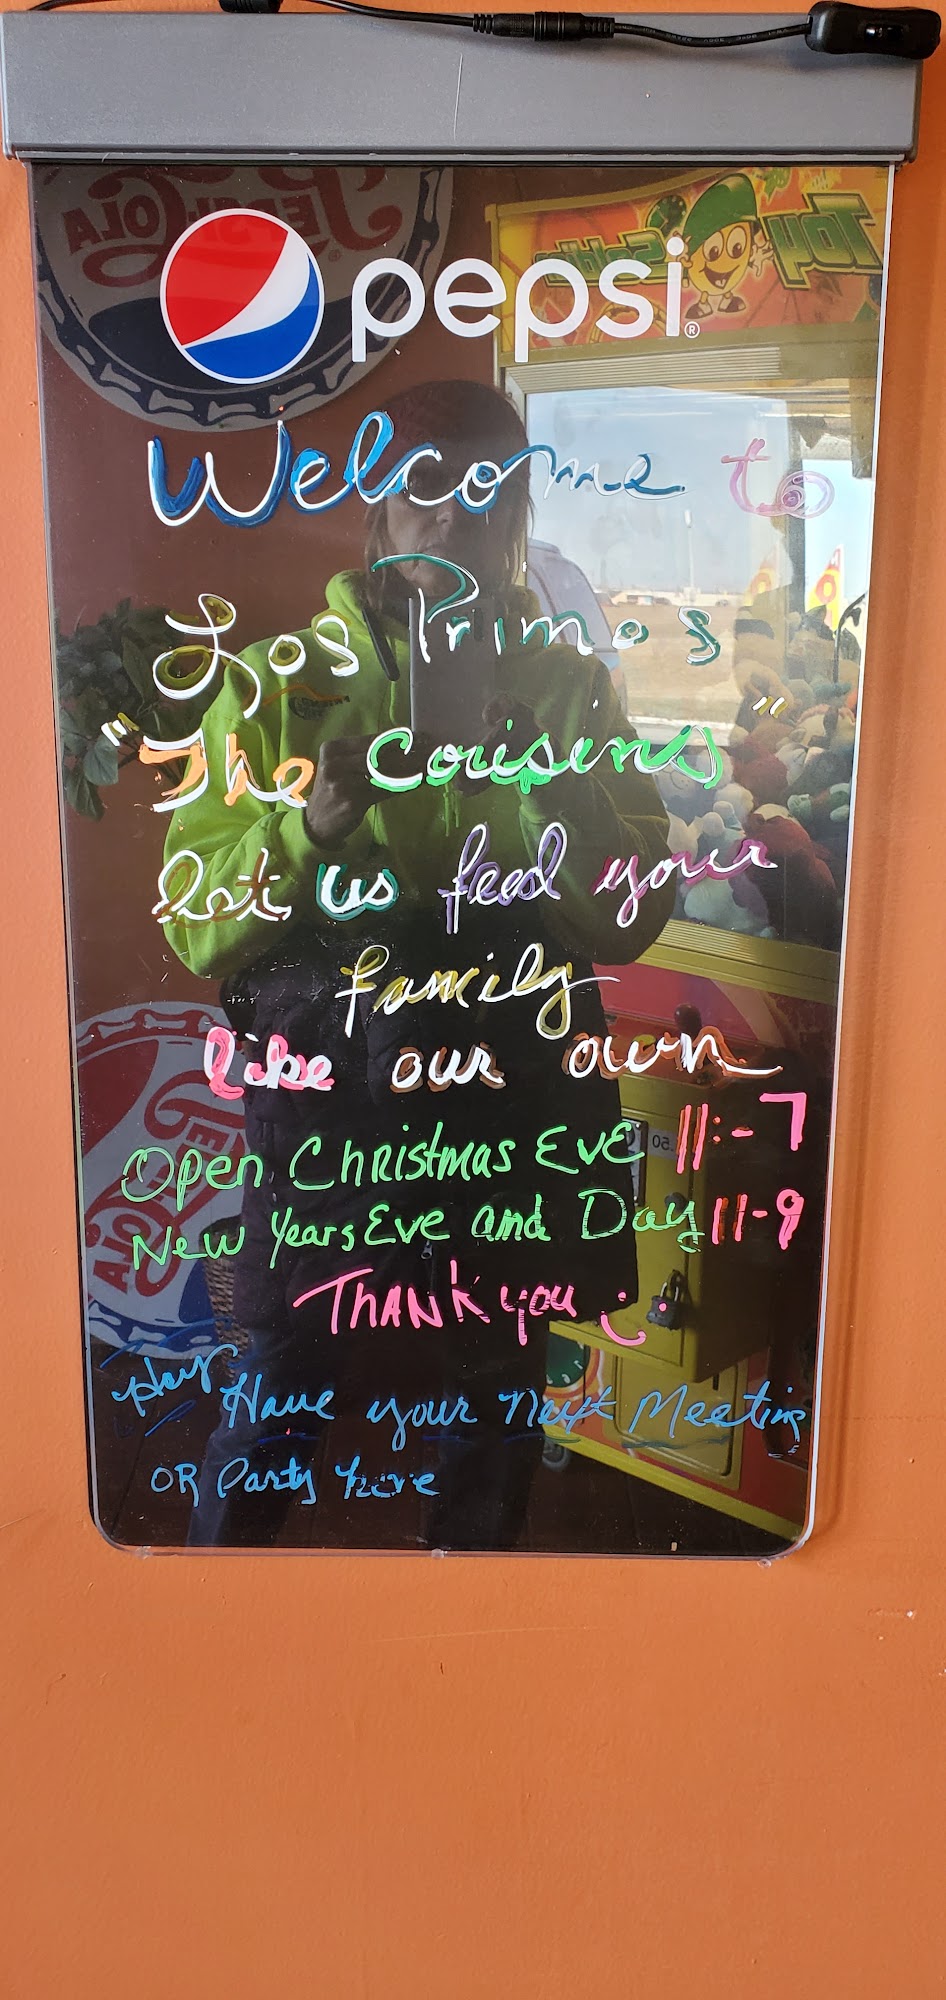 pepsi®
Welcome to
Los Primos
"The Couisens"
let us feed your
family
like our own
Open Christmas EvE 11:-7
New Years Eve and Day 11-9
THANK you
Hey
Have your Next Meeting
OR Party here